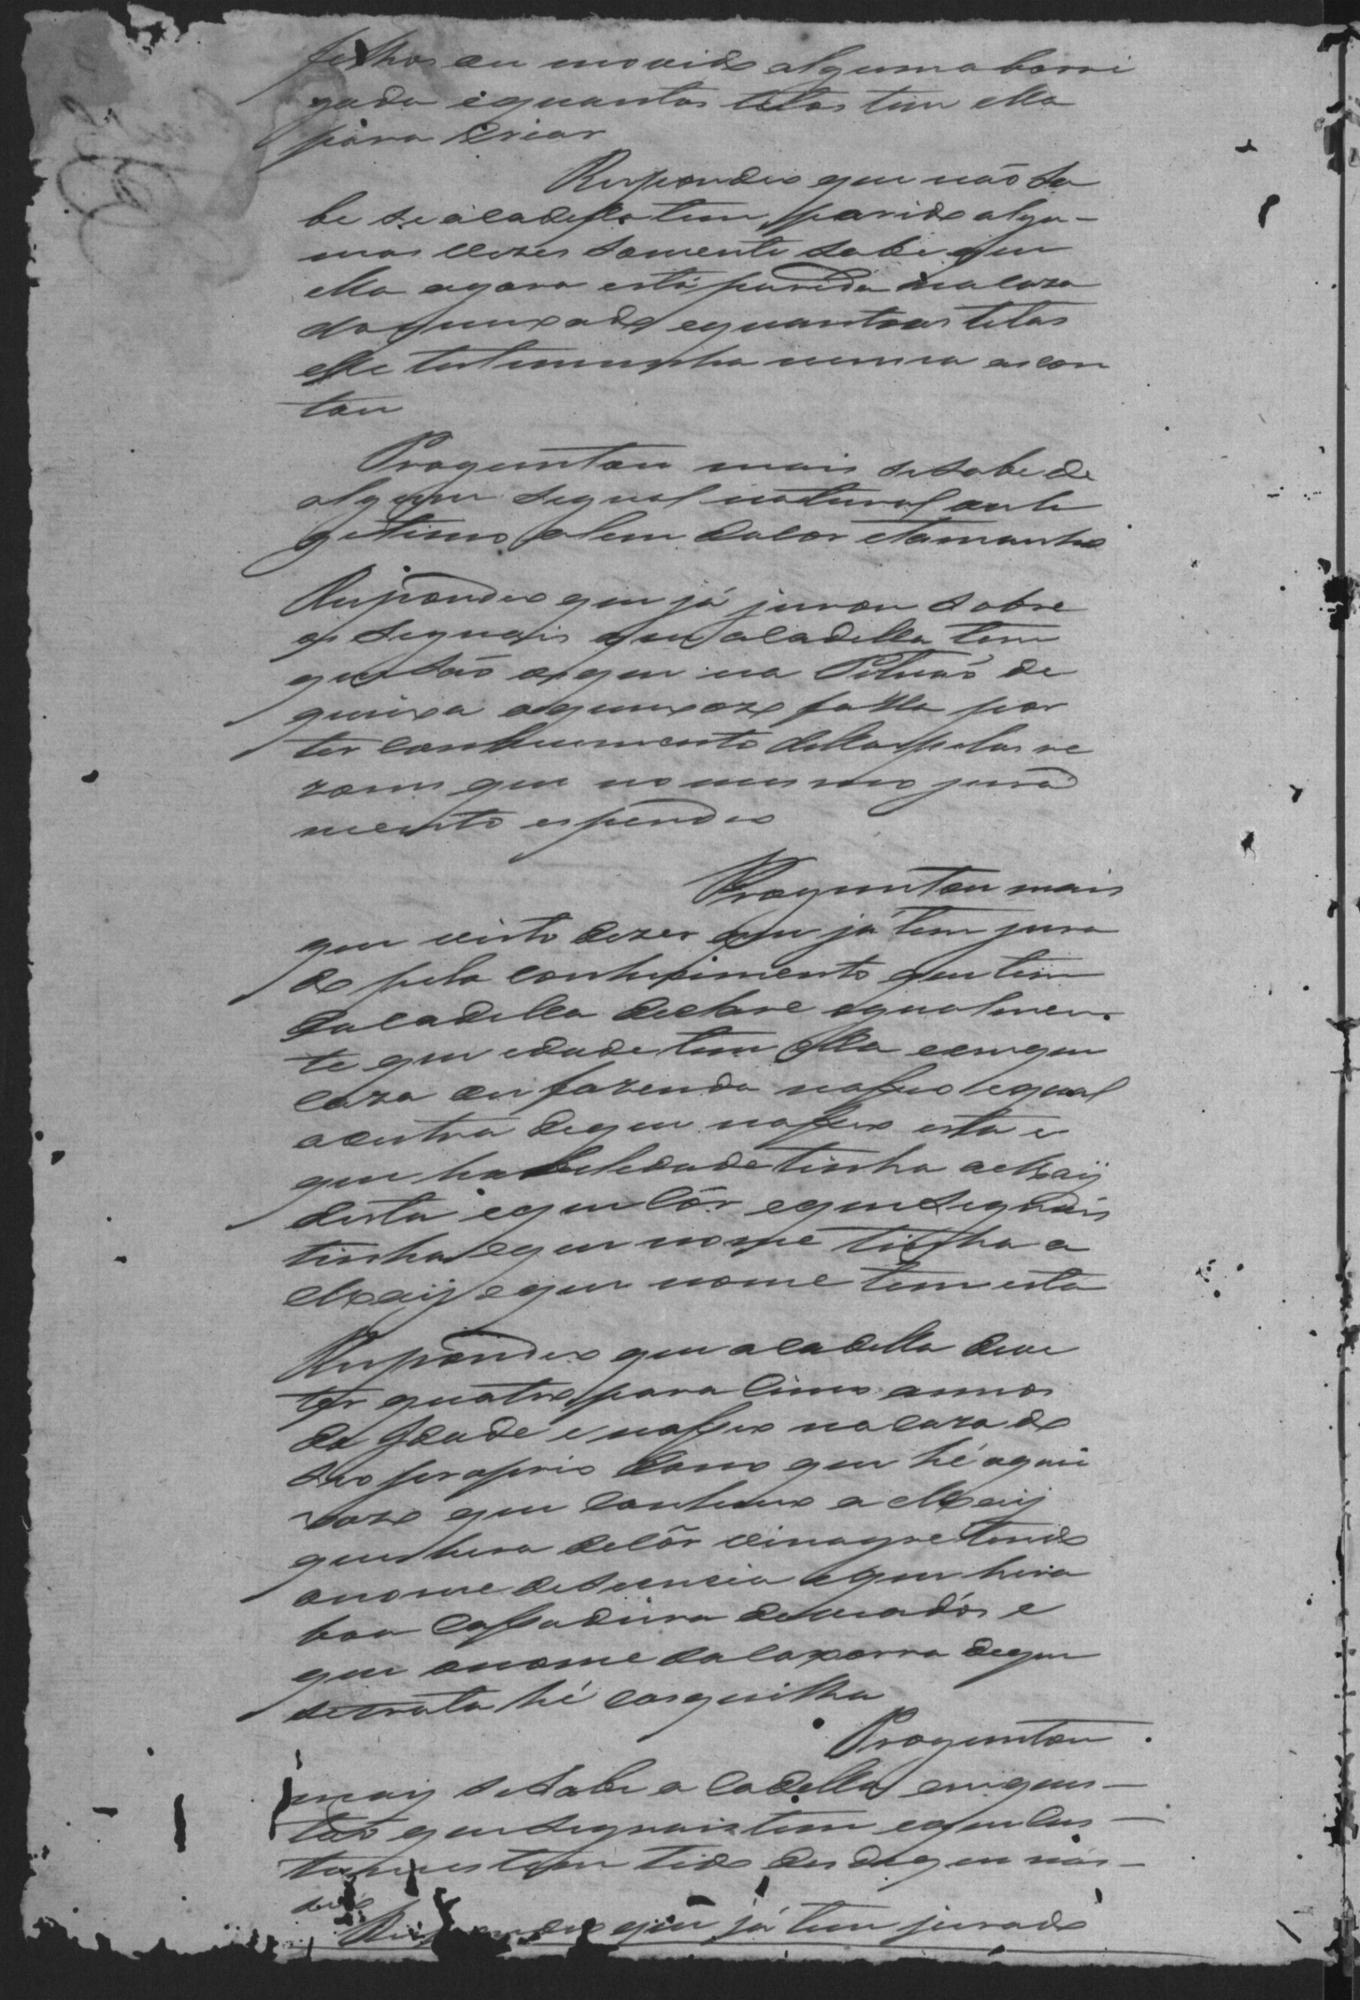 filhos ou movido alguma barri
gada e quantas tetas tem ella
para criar
Respondeo que não sa
be se a cadella tem parido algu-
mas vezes somente sabe que
ella agora está parida na caza
do queixado e quantas tetas
elle testemunha nunca as con
tou
Proguntou mais se sabe de
algum segnal natural ou le
getimo alem da cor e tamanho
Respondeo que já jurou sobre
os segnais que a cadella tem
que são os que na Petição de
queixa o queixozo falla por
ter conhecimento della pelas re
zoens que no mesmo jura
mento espendeo
Proguntou mais
que visto dizer que já tem jura
do pelo conhesimento que tem
da cadella declare egualmen
te que edade tem ella em que
caza ou fazenda nasseo e qual
a outra de que nasseo esta e
que habelidade tinha a Maij
desta e que côr e que segnais
tinha e que nome tinha a
Maij e que nome tem esta
Respondeo que a cadella deve
ter quatro para cinco annos
de Idade e nasseo na caza do
seo proprio dono que hé o quei
xozo que conheceo a Maij
que hera de côr vinagre tendo
o nome de e que hera
boa cassadeira de viados e
que o nome da caxorra de que
se trata hé casquilha
Proguntou
mais se sabe a cadella em ques-
tão que segnais tem e que cus-
tumes tem tido des de que nas-
seo
Respondeo que já tem jurado